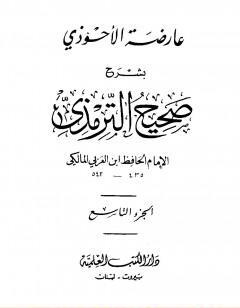 عارضة الأحوذي
بشرح
صحيح الترمذي
للإمام الحافظ ابن العربي المالكي
٤٣٥ — ٥٤٣
الجزء التاسع
دار الكتب العلمية
بيروت - لبنان